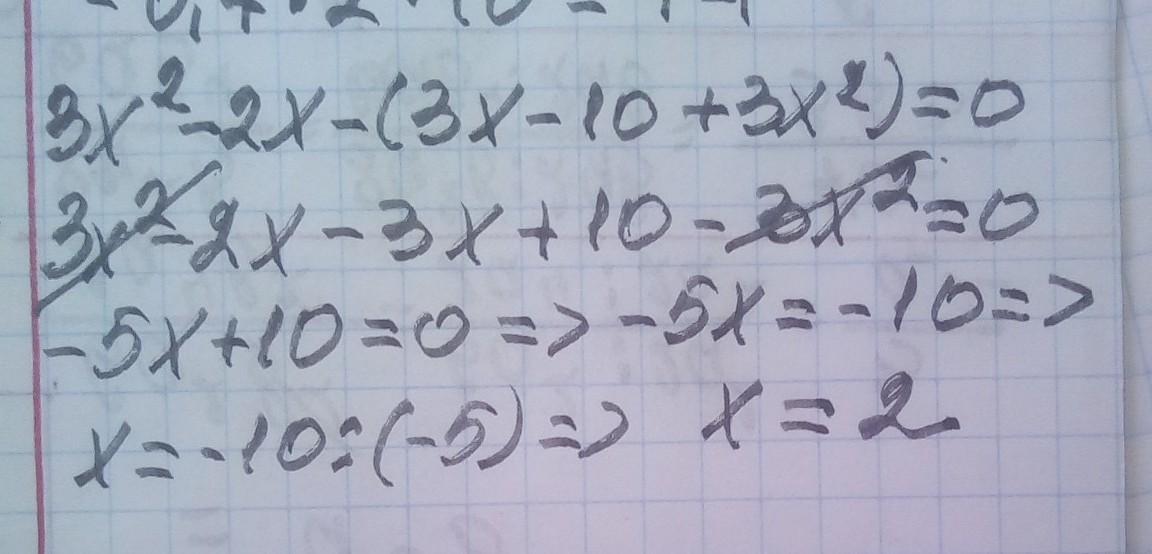 3x²-2x-(3x-10+3x²)=0
3x²-2x-3x+10-3x²=0
-5x+10=0=>-5x=-10=>
x=-10:(-5)=> x=2